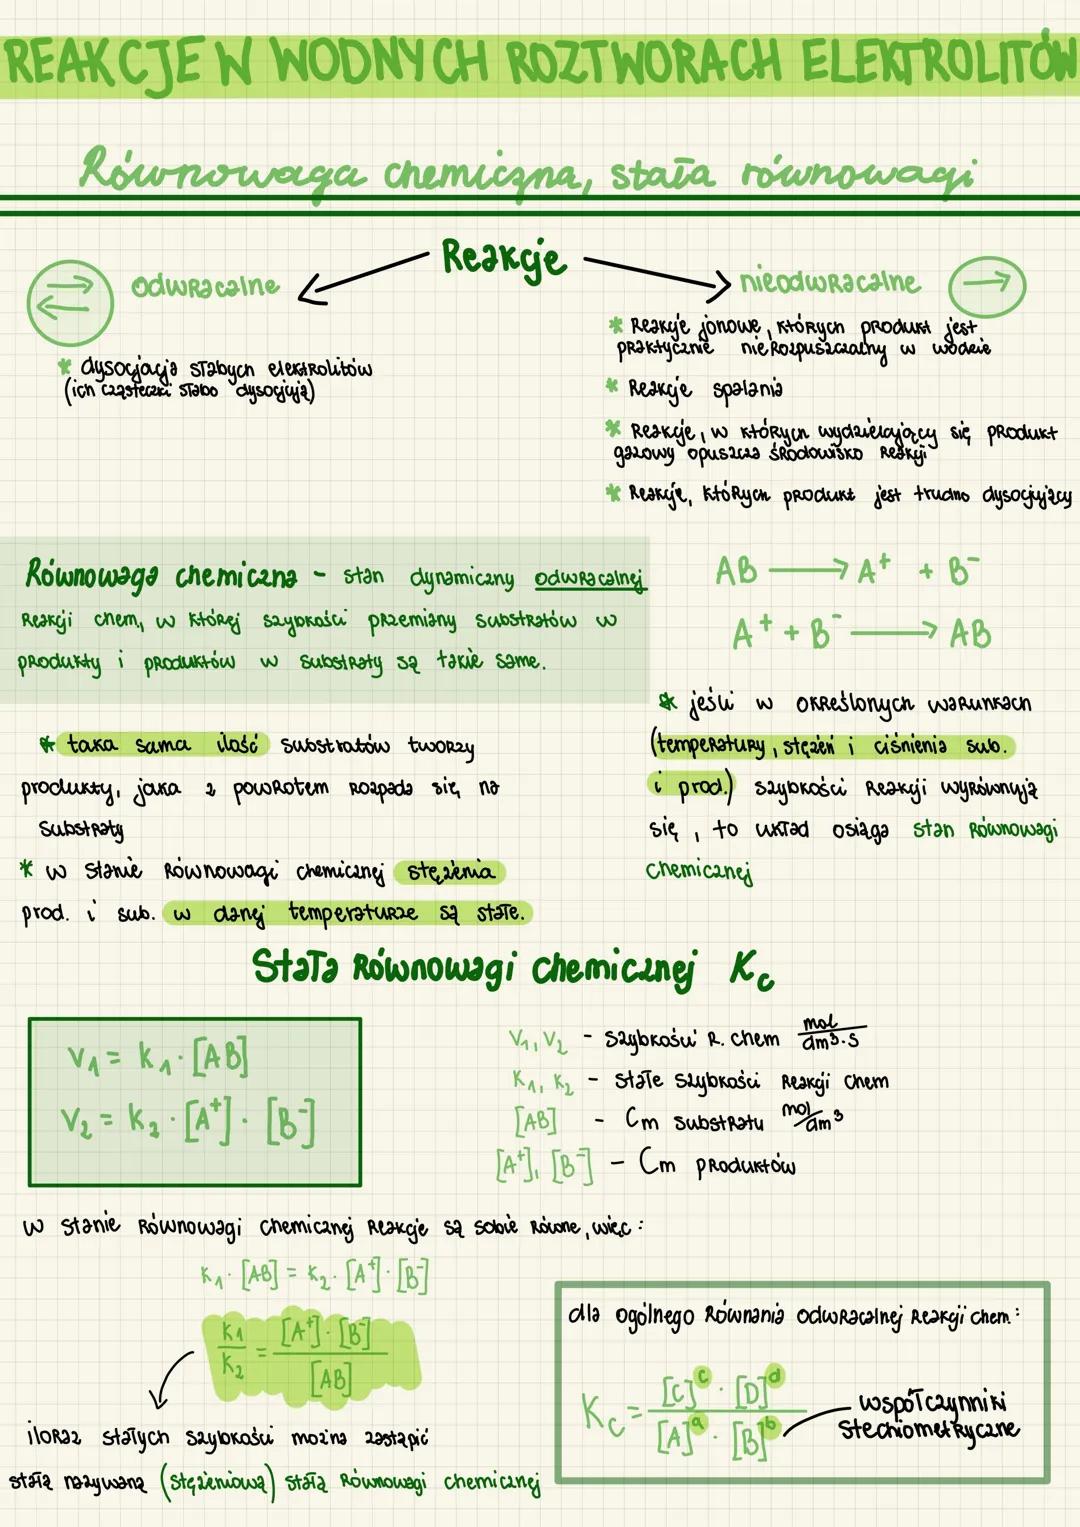 REAKCJE W WODNYCH ROZTWORACH ELEKTROLITÓW
Równowaga chemiczna, stała równowagi
Reakcje
odwracalne
nieodwracalne
* dysocjacja słabych elektrolitów
(ich cząsteczki słabo dysocjują)
* Reakcje jonowe, których produkt jest
praktycznie nierozpuszczalny w wodzie
* Reakcje spalania
* Reakcje, w których wydzielający się produkt
gazowy opuszcza środowisko reakcji
* Reakcje, których produkt jest trudno dysocjujący
Równowaga chemiczna - stan dynamiczny odwracalnej
Reakcji chem, w której szybkości przemiany substratów w
produkty i produktów w substraty są takie same.
AB → A⁺ + B⁻
A⁺ + B⁻ → AB
* taka sama ilość substratów tworzy
produkty, jaka z powrotem rozpada się na
substraty
* w stanie równowagi chemicznej stężenia
prod. i sub. w danej temperaturze są stałe.
* jeśli w określonych warunkach
(temperatury, stężeń i ciśnienia sub.
i prod.) szybkości reakcji wyrównują
się, to układ osiąga stan równowagi
chemicznej
Stała równowagi chemicznej Kc
V₁ = k₁ · [AB]
V₂ = k₂ · [A⁺] · [B⁻]
V₁, V₂ - szybkości r. chem mol/dm³·s
K₁, K₂ - stałe szybkości reakcji chem
[AB] - Cm substratu mol/dm³
[A⁺], [B⁻] - Cm produktów
w stanie równowagi chemicznej reakcje są sobie równe, więc:
K₁ · [AB] = K₂ · [A⁺] · [B⁻]
K₁/K₂ = [A⁺] · [B⁻] / [AB]
iloraz stałych szybkości można zastąpić
stałą nazywaną (stężeniową) stałą równowagi chemicznej
dla ogólnego równania odwracalnej reakcji chem:
Kc = [C]ᶜ · [D]ᵈ / [A]ᵃ · [B]ᵇ
współczynniki
stechiometryczne